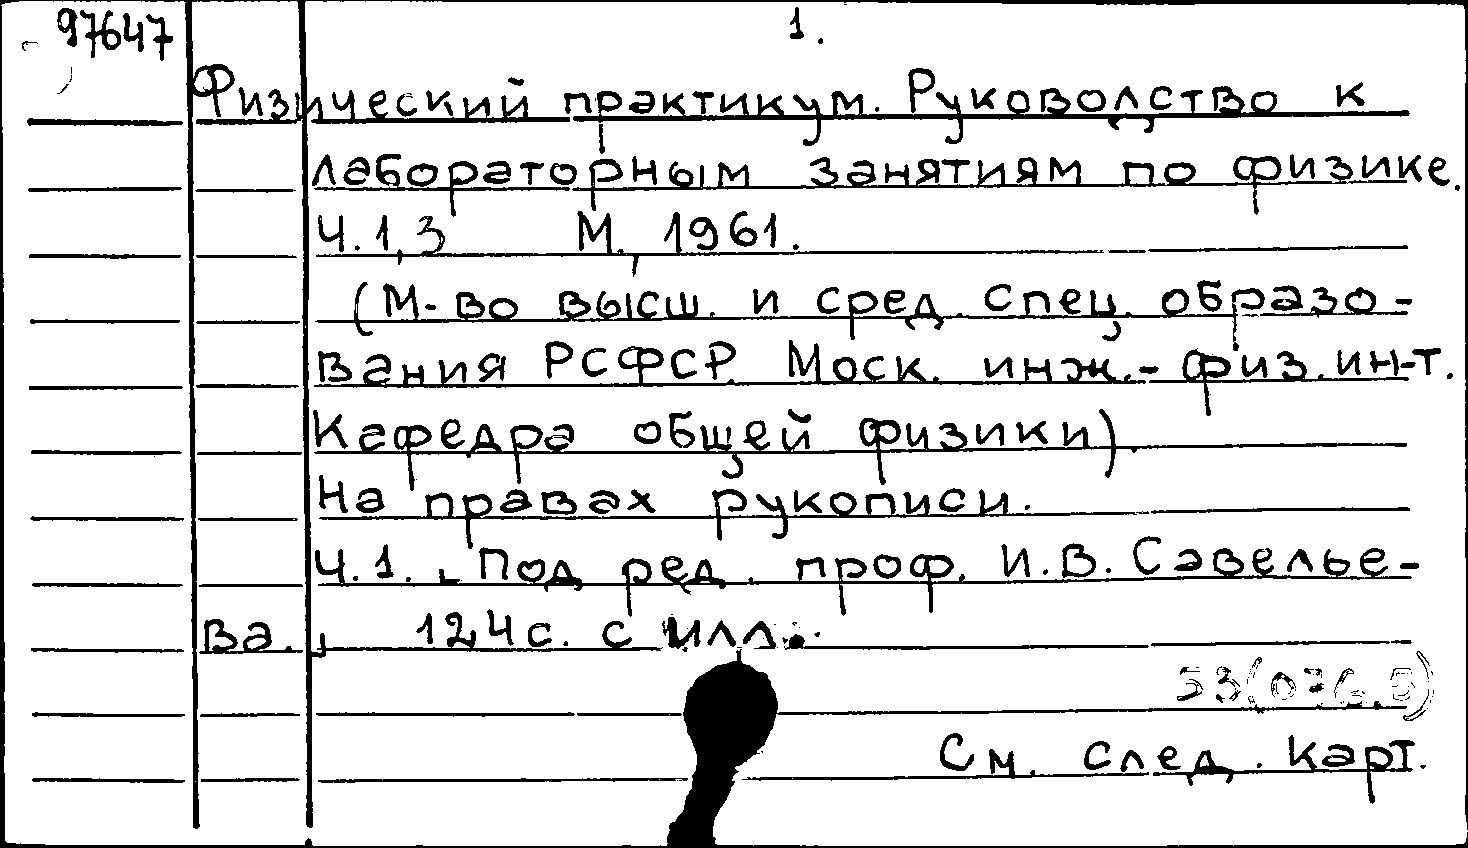 97647
1.
Физический практикум. Руководство к
лабораторным занятиям по физике.
Ч.1,3 М., 1961.
(М-во высш. и сред. спец. образо-
вания РСФСР. Моск. инж.-физ. ин-т.
Кафедра общей физики).
На правах рукописи.
Ч.1. [Под ред. проф. И.В. Савелье-
ва.] 124с. с илл.
53(076.5)
См. след. карт.